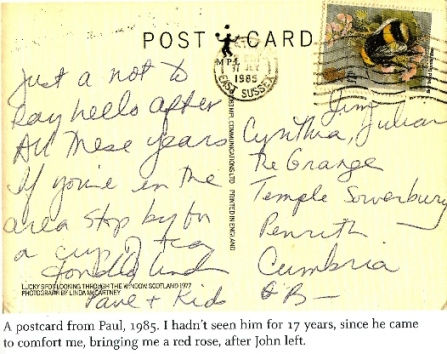 POST CARD
1985
EAST SUSSEX
MPL COMMUNICATIONS LTD PRINTED IN ENGLAND
Just a not to
Say hello after
All these years
If you're in the
area stop by for
a cup of tea
Linda
Paul + Kids
LUCKY SPOT LOOKING THROUGH THE WINDOW, SCOTLAND 1977
PHOTOGRAPH BY LINDA McCARTNEY
Jim
Cynthia, Julian
The Grange
Temple Sowerbury
Penrith
Cumbria
A postcard from Paul, 1985. I hadn't seen him for 17 years, since he came
to comfort me, bringing me a red rose, after John left.